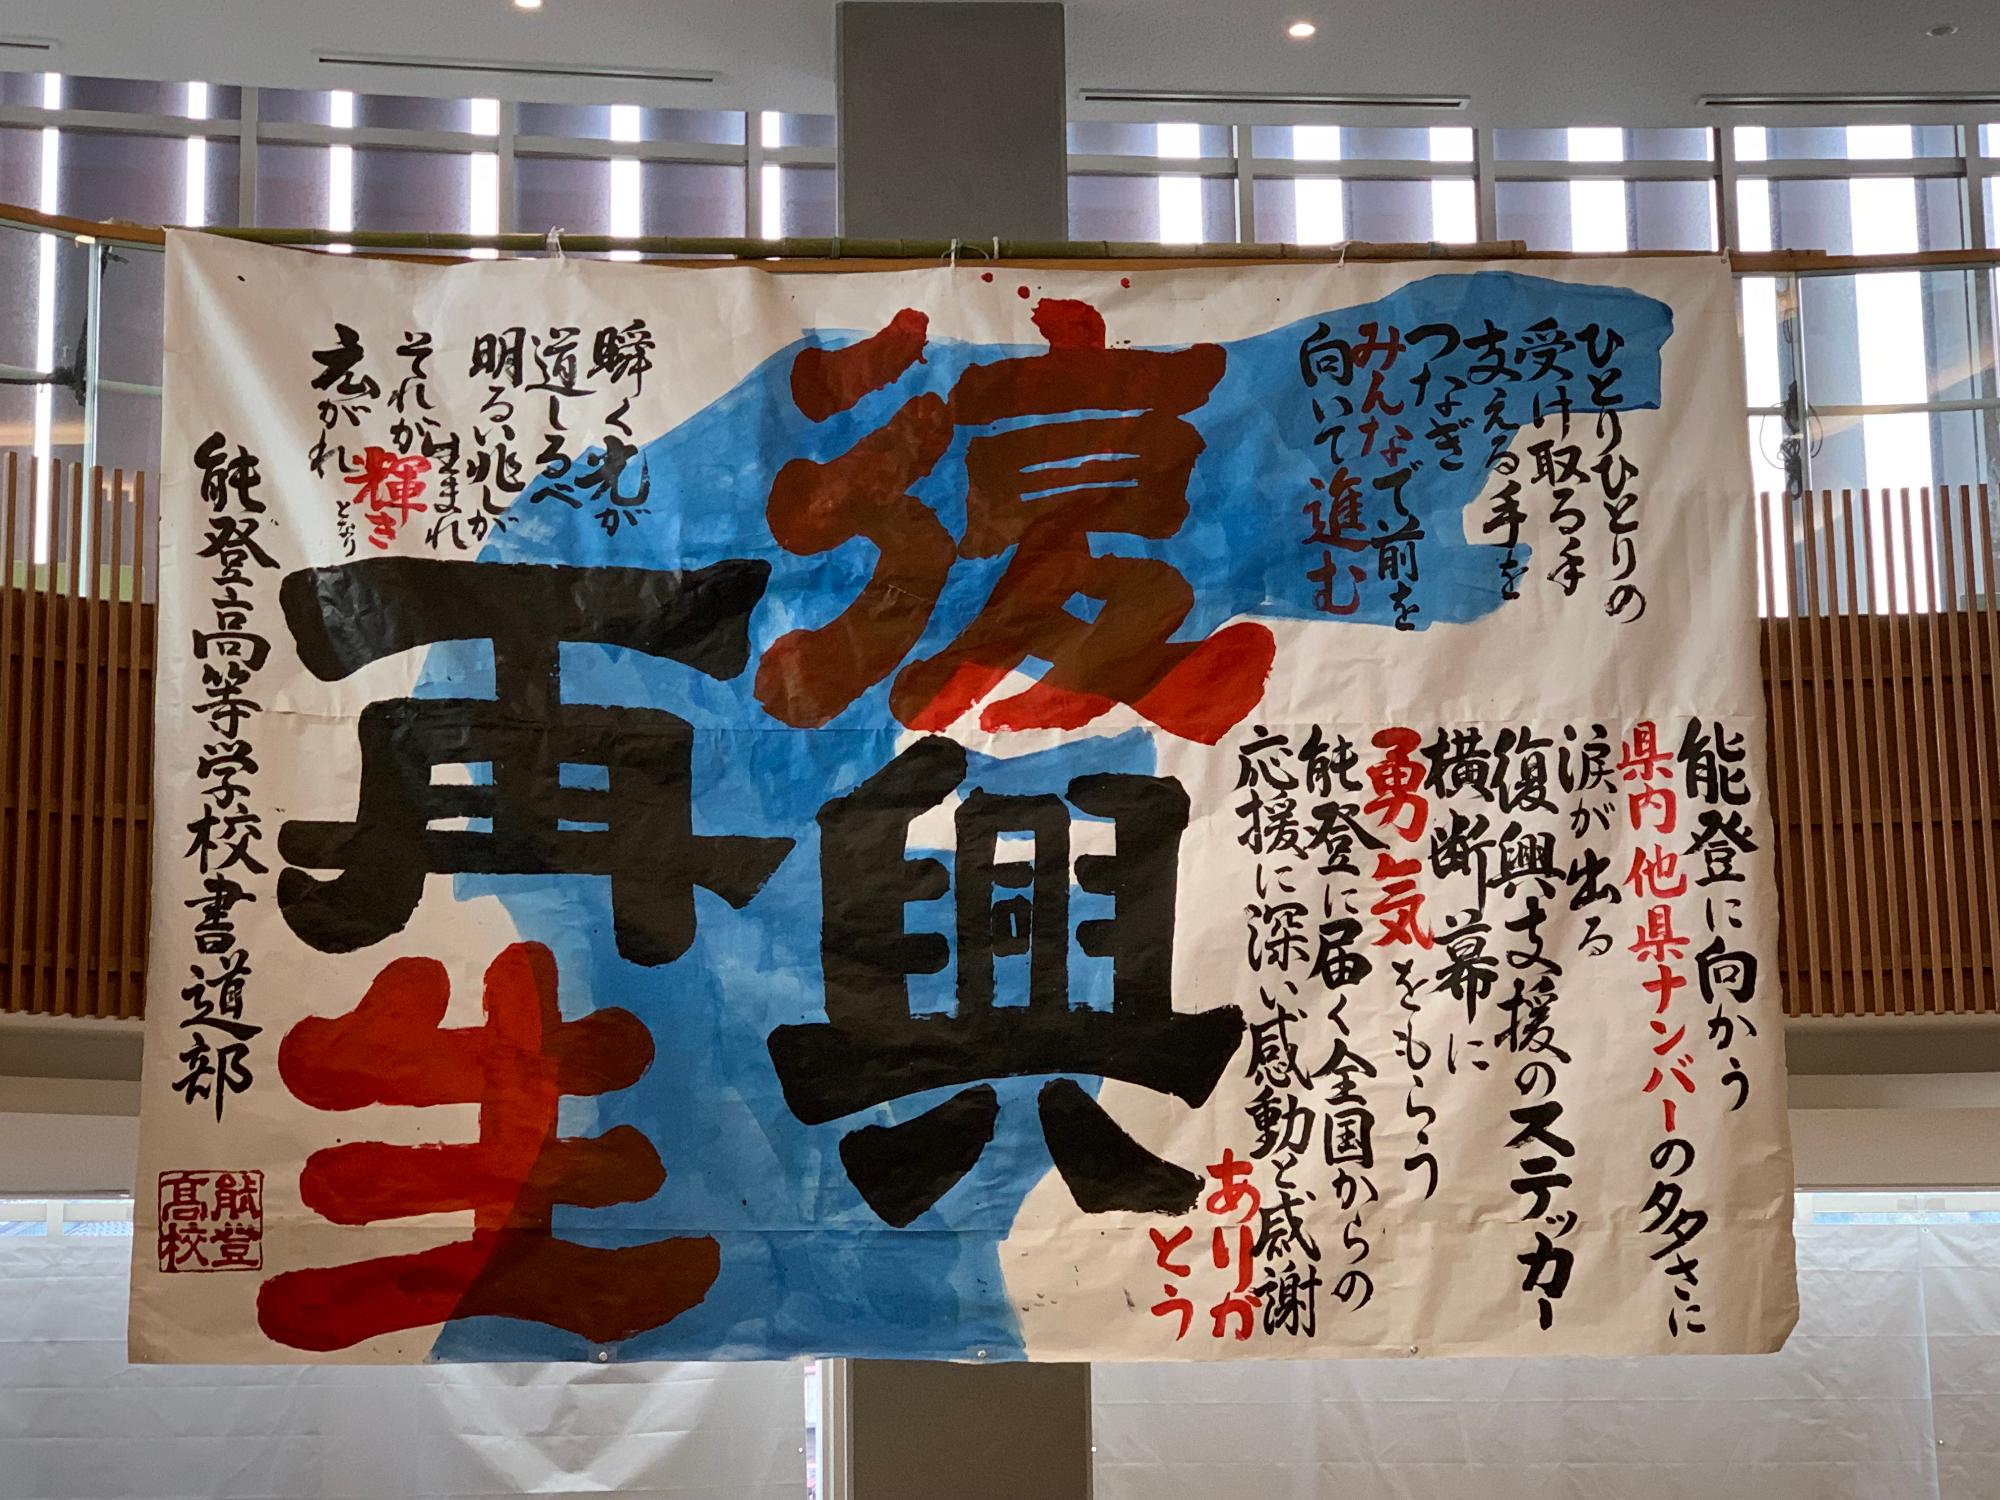 ひとりひとりの
受け取る手
支える手を
つなぎ
みんなで前を
向いて進む
能登に向かう
県内他県ナンバーの多さに
涙が出る
復興支援のステッカー
横断幕に
勇気をもらう
能登に届く全国からの
応援に深い感動と感謝
ありが
とう
復興
再生
瞬く光が
道しるべ
明るい兆しが
生まれ
それが輝き
となり
広がれ
能登高等学校書道部
能登
高校